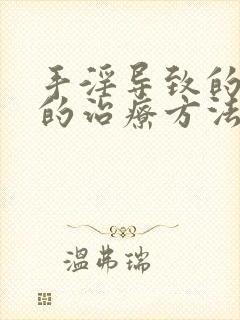 手淫导致的
的治疗方法
温弗瑞